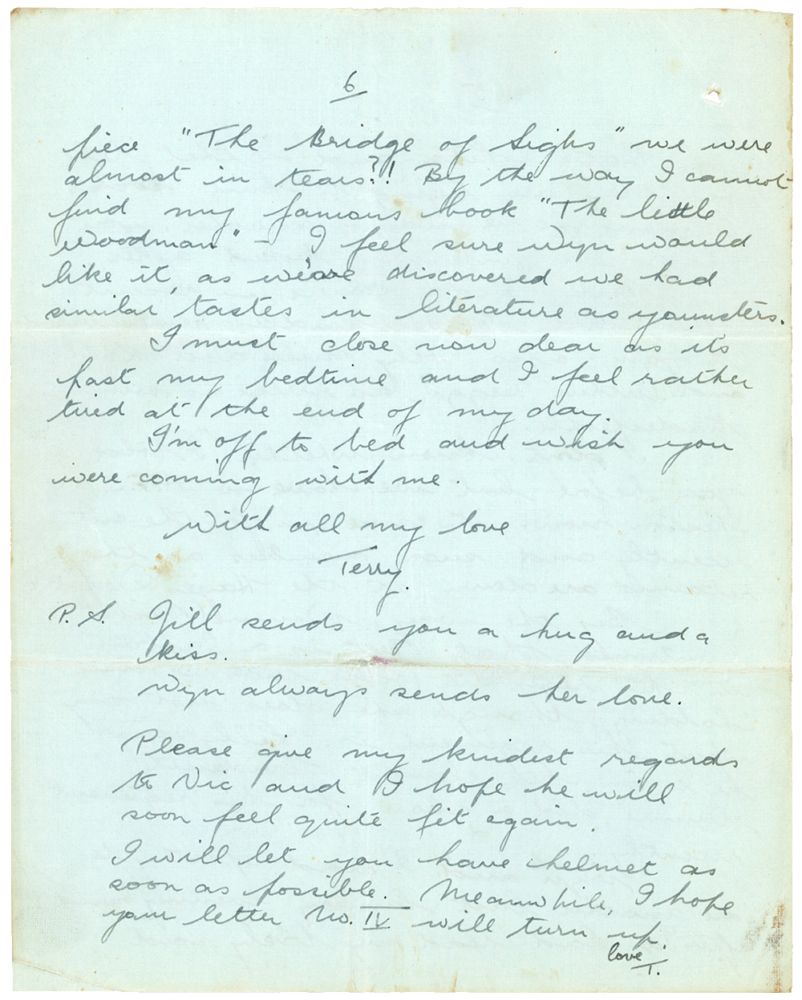 6
piece "The Bridge of Sighs" we were
almost in tears?!! By the way I cannot
find my famous book "The little
Woodman" - I feel sure Wyn would
like it, as we've discovered we had
similar tastes in literature as younsters.
I must close now dear as its
past my bedtime and I feel rather
tired at the end of my day.
I'm off to bed and wish you
were coming with me.
With all my love
Terry.
P.S. Jill sends you a hug and a
kiss.
Wyn always sends her love.
Please give my kindest regards
to Vic and I hope he will
soon feel quite fit again.
I will let you have helmet as
soon as possible. Meanwhile, I hope
your letter No. IV will turn up.
love
T.